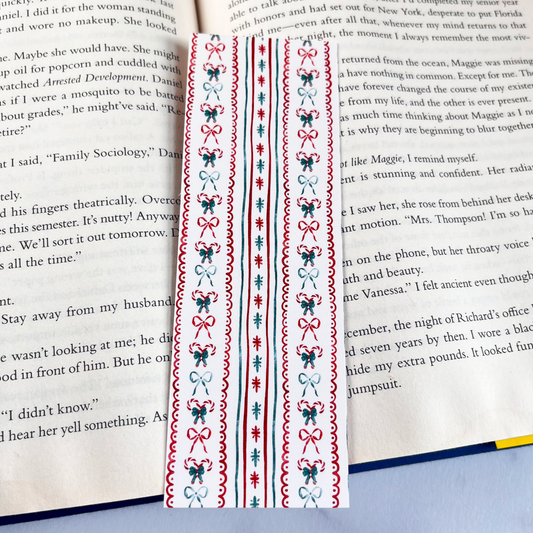 quickly.
niel. I did it for the women
t and wore no makeup. She looked
me. Maybe she would have. She might
up oil for popcorn and cuddled with
watched Arrested Development. Daniel
as if I were a mosquito to be batted
about grades," he might've said. "Re-
etire?"
at I said, "Family Sociology," Dani
tely.
nd his fingers theatrically. Overco
es this semester. It's nutty! Anyway
me. We'll sort it out tomorrow. D
s all the time."
nt.
Stay away from my husband
e wasn't looking at me; he did
ood in front of him. But he on
"I didn't know."
d hear her yell something. As
able to
I'd completed my senior year
with honors and had set out for New York, desperate to put Florida
me—even after all that, whenever my mind returns to that
her night, the moment I always remember the most viv-
returned from the ocean, Maggie was missing
have nothing in common. Except for me. The
have forever changed the course of my existen
from my life, and the other is ever present.
as much time thinking about Maggie as I no
is why they are beginning to blur together
ot like Maggie, I remind myself.
ent is stunning and confident. Her radia
I saw her, she rose from behind her desk
ant motion. "Mrs. Thompson! I'm so ha
en on the phone, but her throaty voice
uth and beauty.
me Vanessa." I felt ancient even though
ecember, the night of Richard's office
d seven years by then. I wore a blac
hide my extra pounds. It looked fun
jumpsuit.